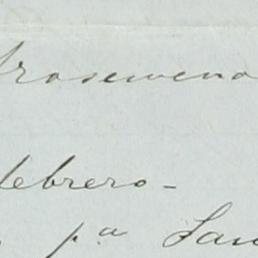 Arosemena
febrero -
pª San